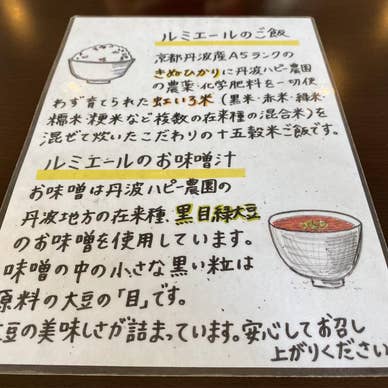 ルミエールのご飯
京都丹波産A5ランクの
きぬひかりに丹波ハピー農園
の農薬・化学肥料を一切使
わず育てられた虹いろ米(黒米・赤米・緑米・
糯米・粳米など複数の在来種の混合米)を
混ぜて炊いたこだわりの十五穀米ご飯です。
ルミエールのお味噌汁
お味噌は丹波ハピー農園の
丹波地方の在来種、黒目緑大豆
のお味噌を使用しています。
味噌の中の小さな黒い粒は
原料の大豆の「目」です。
豆の美味しさが詰まっています。安心してお召し
上がりください